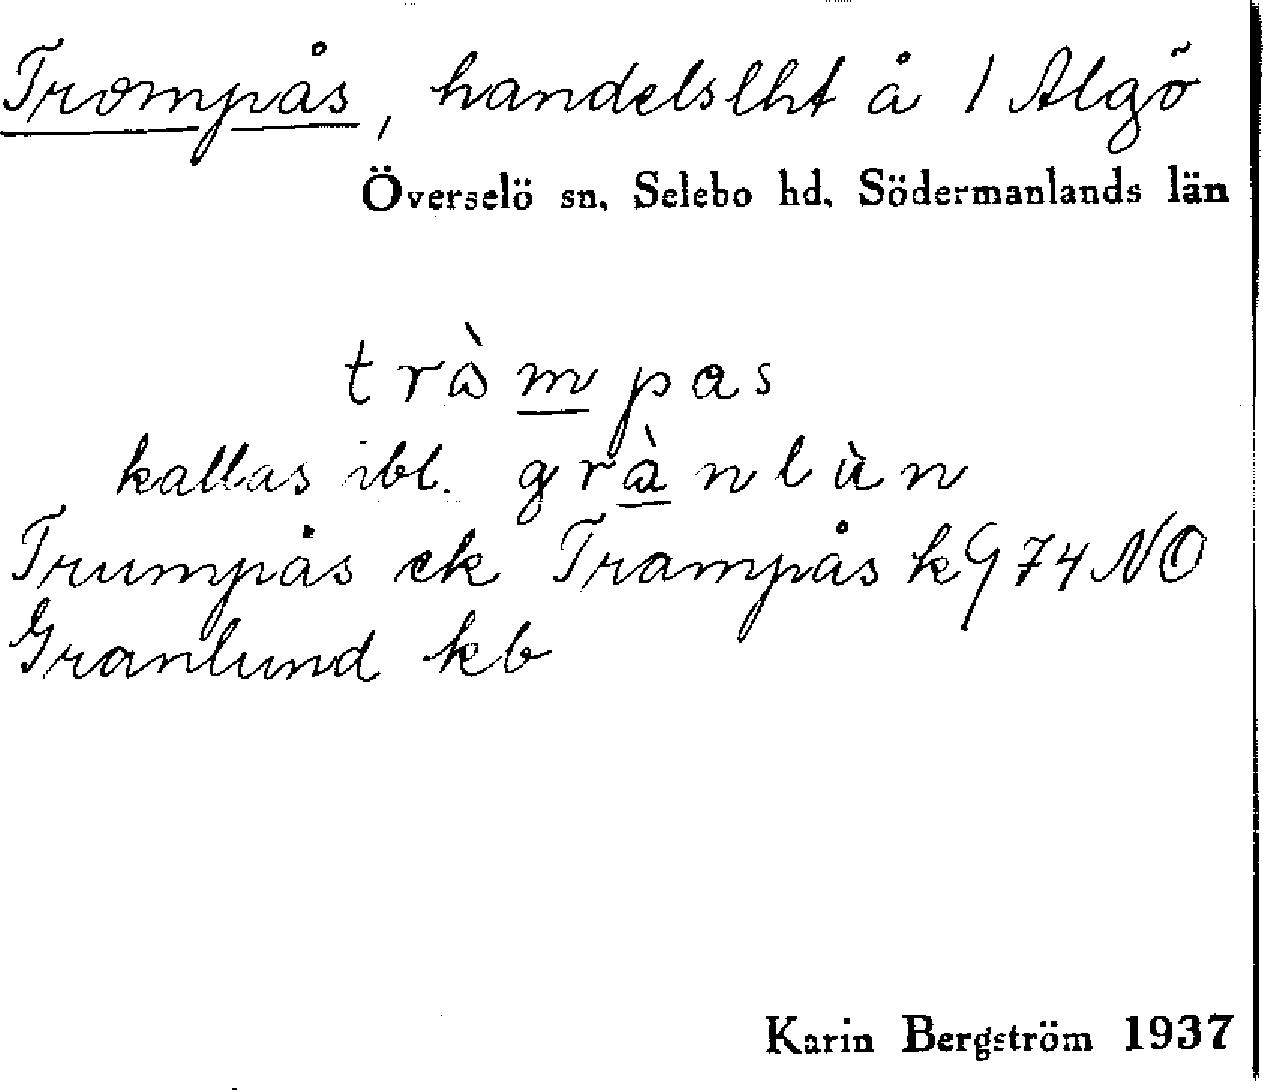 Trompås, handelslht å 1 Algö
Överselö sn, Selebo hd, Södermanlands län
tràmpas
kallas ibl. grànlùn
Trumpås ek Trampås kG 74 NO
Granlund kb
Karin Bergström 1937